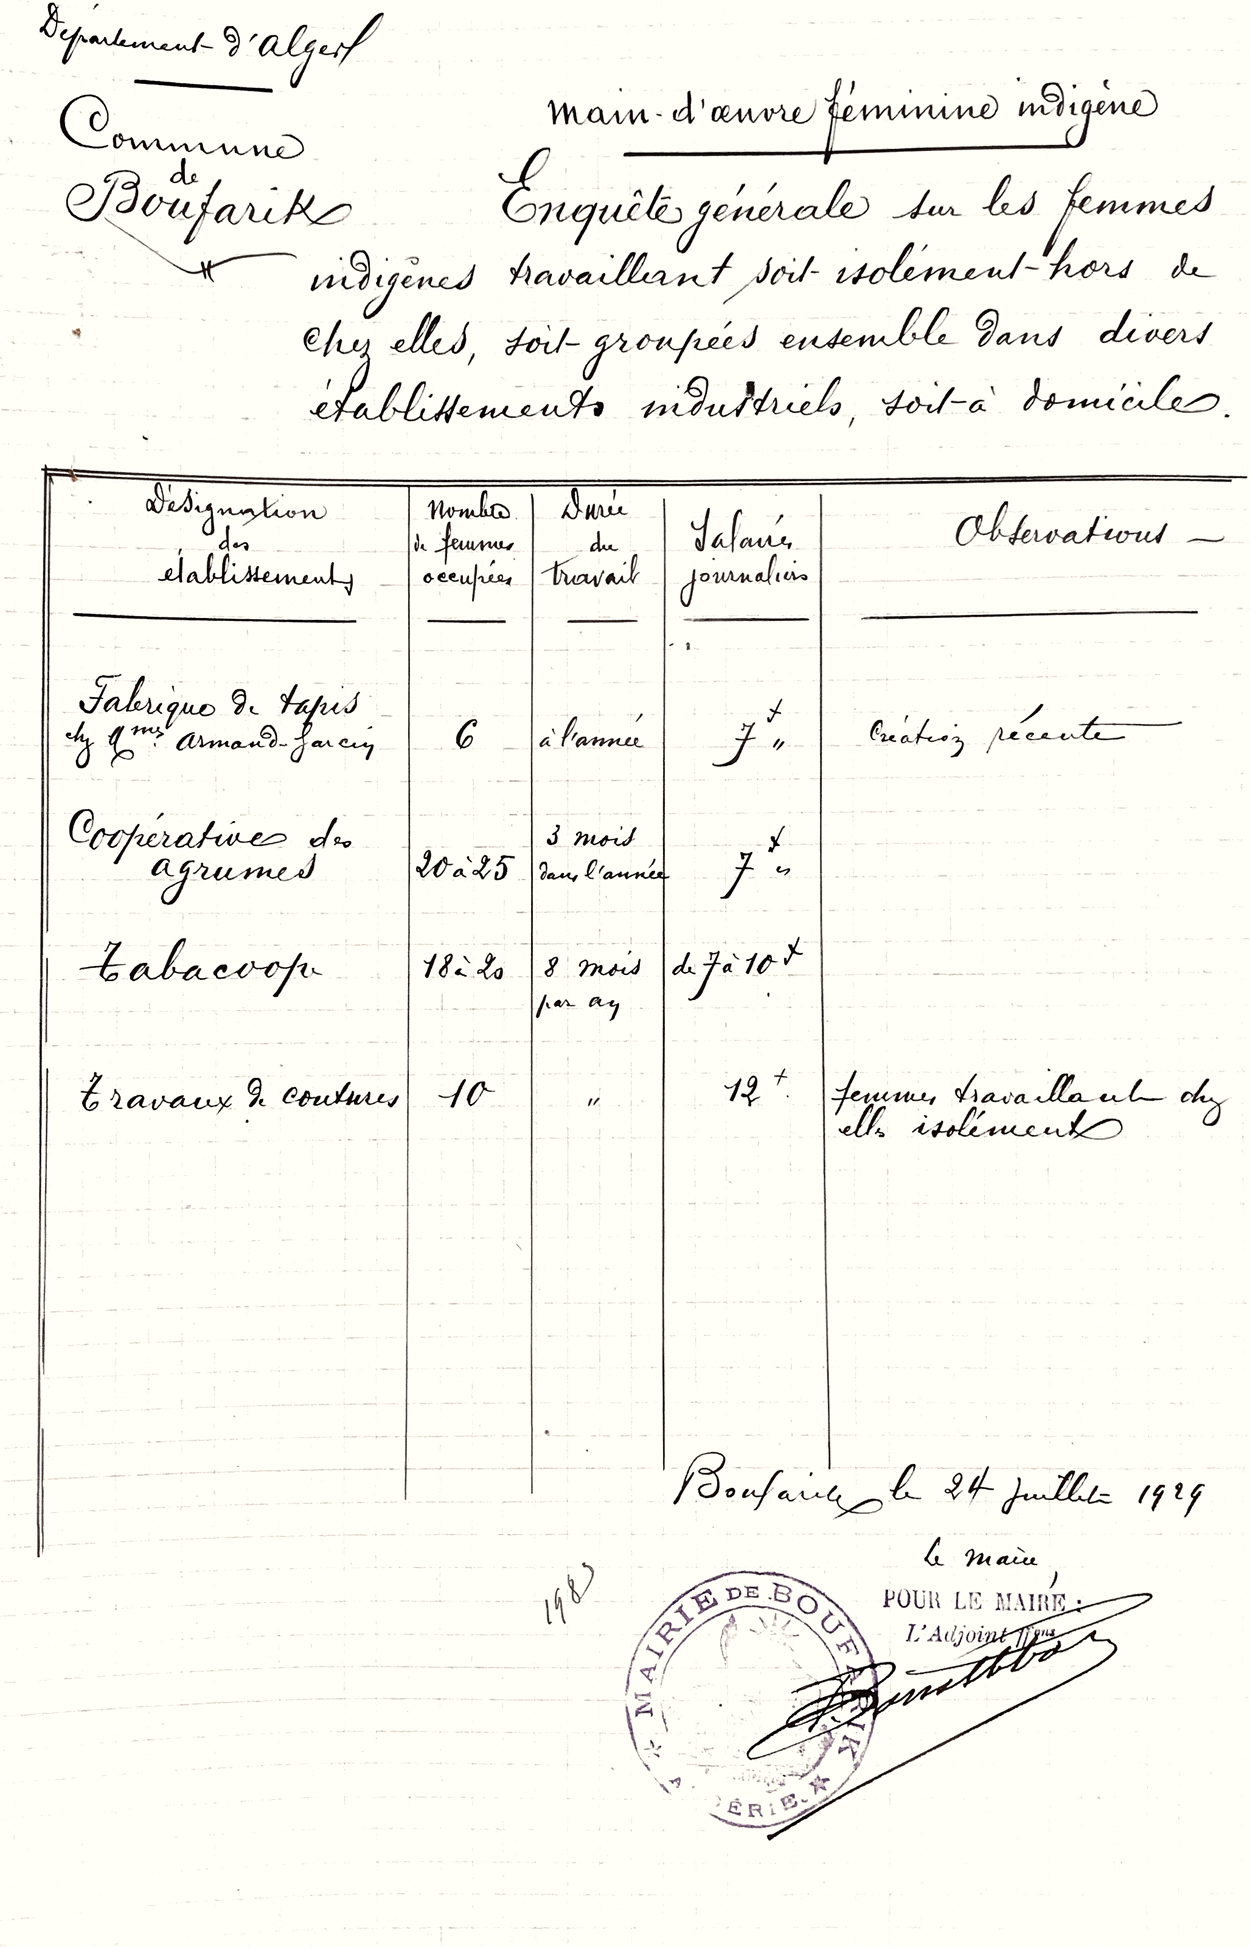 Département d'Alger
Commune
de
Boufarik
Main-d'œuvre féminine indigène
Enquête générale sur les femmes
indigènes travaillant soit isolément hors de
chez elles, soit groupées ensemble dans divers
établissements industriels, soit à domicile.
Désignation
des
établissements
Nombre
de femmes
occupées
Durée
du
travail
Salaires
journaliers
Observations
Fabrique de tapis
chez Armand-Garcin
6
à l'année
7 f "
Création récente
Coopérative des
agrumes
20 à 25
3 mois
dans l'année
7 f "
Tabacoop
18 à 20
8 mois
par an
de 7 à 10 f
Travaux de coutures
10
"
12 f
femmes travaillant chez
elles isolément
Boufarik le 24 juillet 1929
Le Maire,
POUR LE MAIRE :
L'Adjoint
MAIRIE DE BOUFARIK
ALGÉRIE.